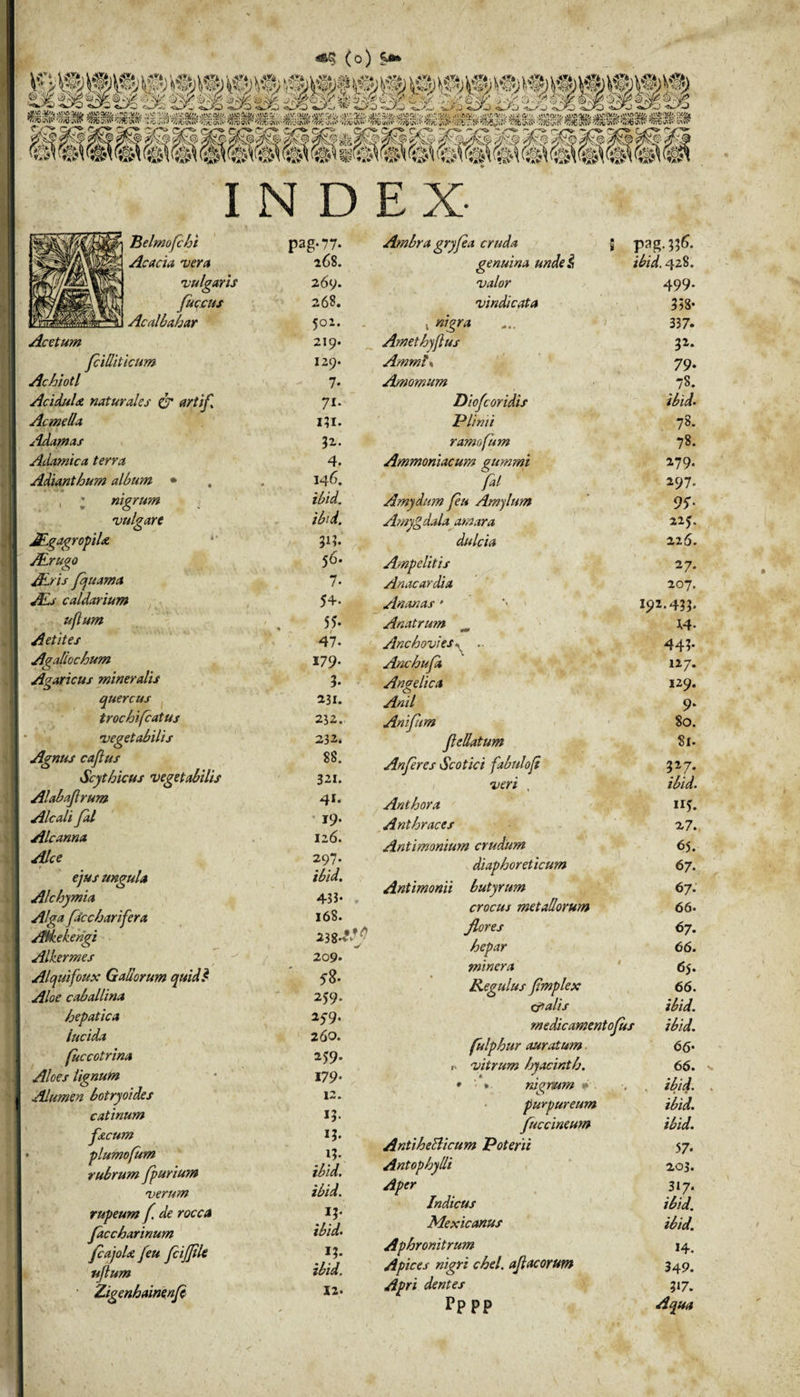 (o)
INDEX
ABelmoschi pag. 77.
Acacia vera 268.
vulgaris 269.
succus 268.
Acalbahar 502.
Acetum 219.
scilliticum 129.
Achiotl 7.
Acidulæ naturales & artif. 71.
Acmella 131.
Adamas 32.
Adamica terra 4.
Adianthum album 146.
nigrum ibid.
vulgare ibid.
Ægagropilæ 313.
Ærugo 56.
Æris squama 7.
Æs caldarium 54.
ustum 55.
Aetites 47.
Agallochum 179.
Agaricus mineralis 3.
quercus 231.
trochiscatus 232.
vegetabilis 232.
Agnus castus 88.
Scythicus vegetabilis 321.
Alabastrum 41.
Alcali sal 19.
Alcanna 126.
Alce 297.
ejus ungula ibid.
Alchymia 433.
Alga saccharifera 168.
Alkekengi 238.
Alkermes 209.
Alquifoux Gallorum quid? 58.
Aloe caballina 259.
hepatica 259.
lucida 260.
succotrina 259.
Aloes lignum 179.
Alumen botryoides 12.
catinum 13.
fæcum 13.
plumosum 13.
rubrum spurium ibid.
verum ibid.
rupeum s. de rocca 13.
saccharinum ibid.
scajolæ seu scissile 13.
ustum ibid.
Zigenhainense 12.
Ambra grysea cruda pag. 336.
genuina unde? ibid. 428.
valor 499.
vindicata 338.
nigra 337.
Amethystus 32.
Ammi 79.
Amomum 78.
Dioscoridis ibid.
Plinii 78.
ramosum 78.
Ammoniacum gummi 279.
sal 297.
Amydum seu Amylum 95.
Amygdala amara 225.
dulcia 226.
Ampelitis 27.
Anacardia 207.
Ananas 192. 433.
Anatrum 14.
Anchovies 443.
Anchusa 127.
Angelica 129.
Anil 9.
Anisum 80.
stellatum 81.
Anseres Scotici fabulosi 327.
veri ibid.
Anthora 115.
Anthraces 27.
Antimonium crudum 65.
diaphoreticum 67.
Antimonii butyrum 67.
crocus metallorum 66.
flores 67.
hepar 66.
minera 65.
Regulus simplex 66.
alis ibid.
medicamentosus ibid.
sulphur auratum 66.
vitrum hyacinth. 66.
nigrum ibid.
purpureum ibid.
succineum ibid.
Antihecticum Poterii 57.
Antophylli 203.
Aper 317.
Indicus ibid.
Mexicanus ibid.
Aphronitrum 14.
Apices nigri chel. astacorum 349.
Apri dentes 317.
Pp pp Aqua